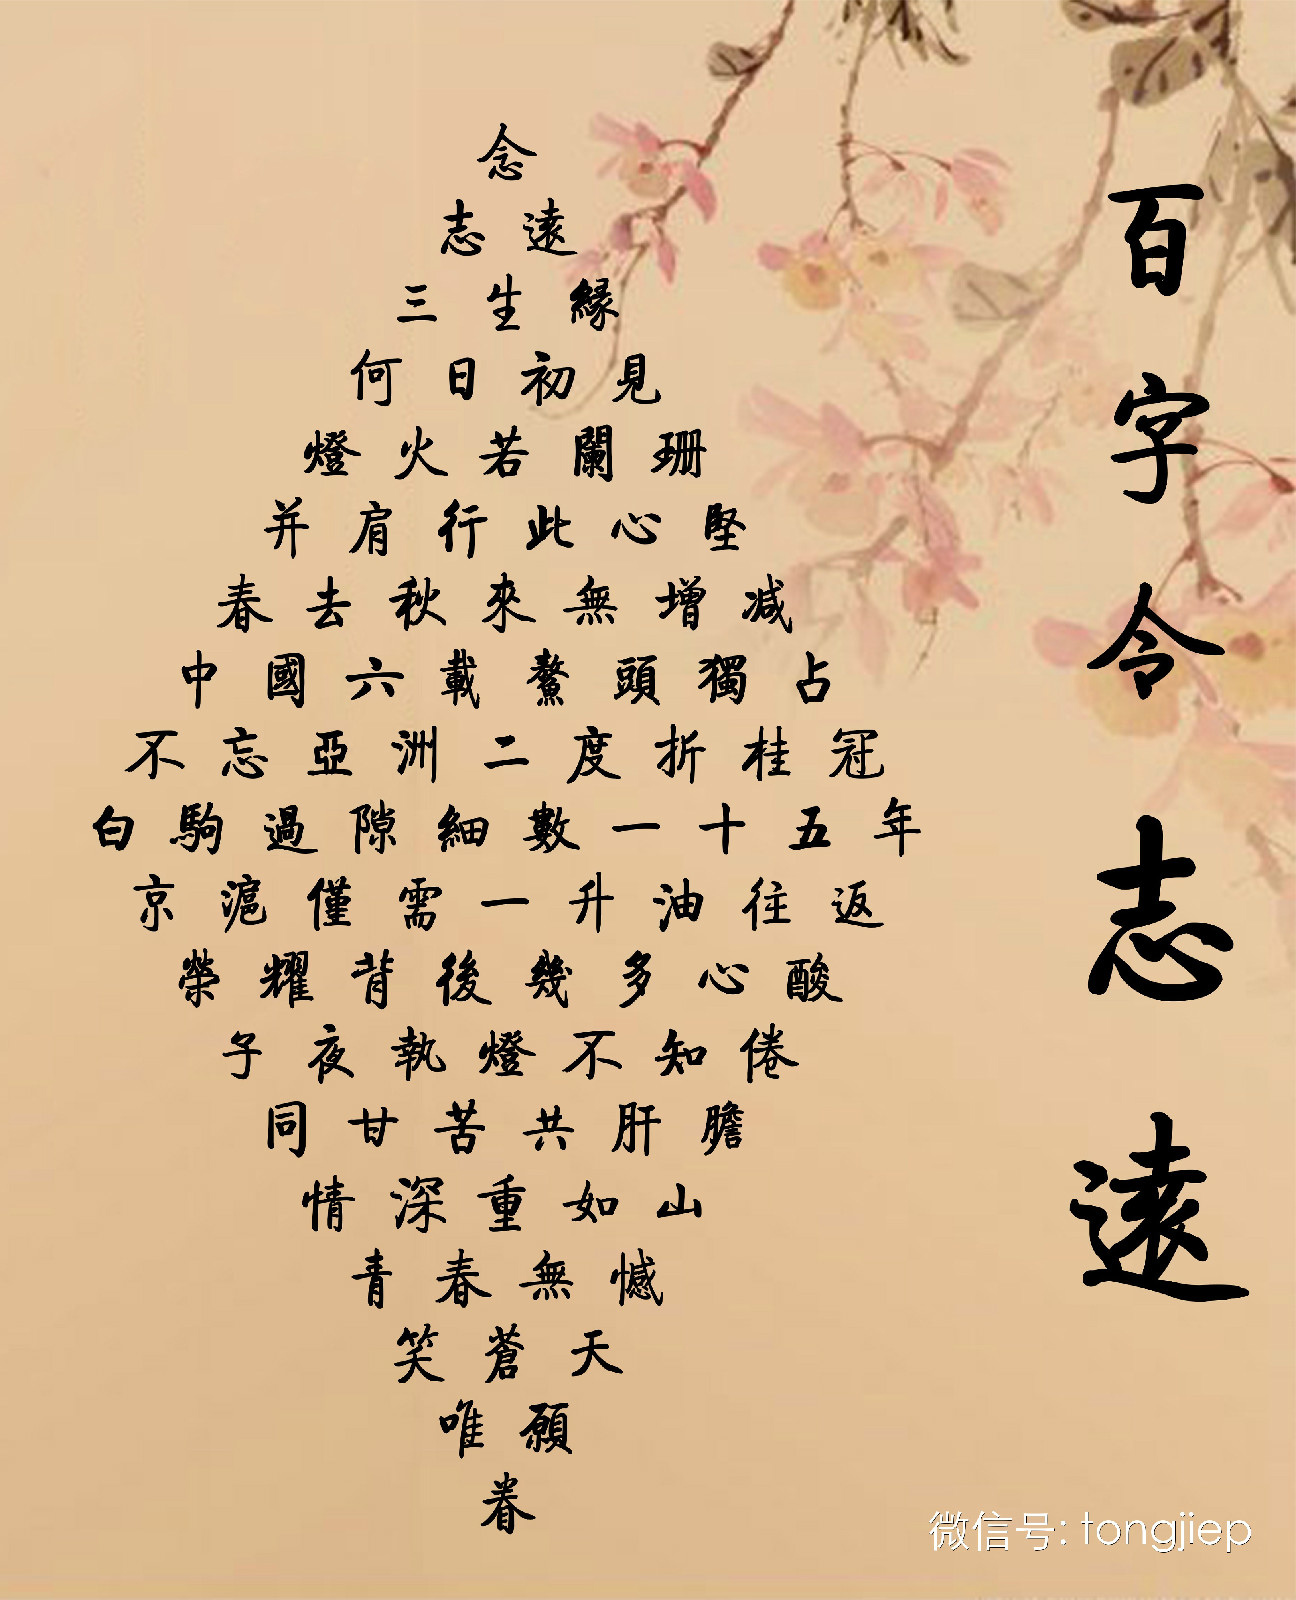 百字令志遠
念
志遠
三生緣
何日初見
燈火若闌珊
并肩行此心堅
春去秋來無增减
中國六載鰲頭獨占
不忘亞洲二度折桂冠
白駒過隙細數一十五年
京滬僅需一升油往返
榮耀背後幾多心酸
子夜執燈不知倦
同甘苦共肝膽
情深重如山
青春無憾
笑蒼天
唯願
眷
微信号: tongjiep